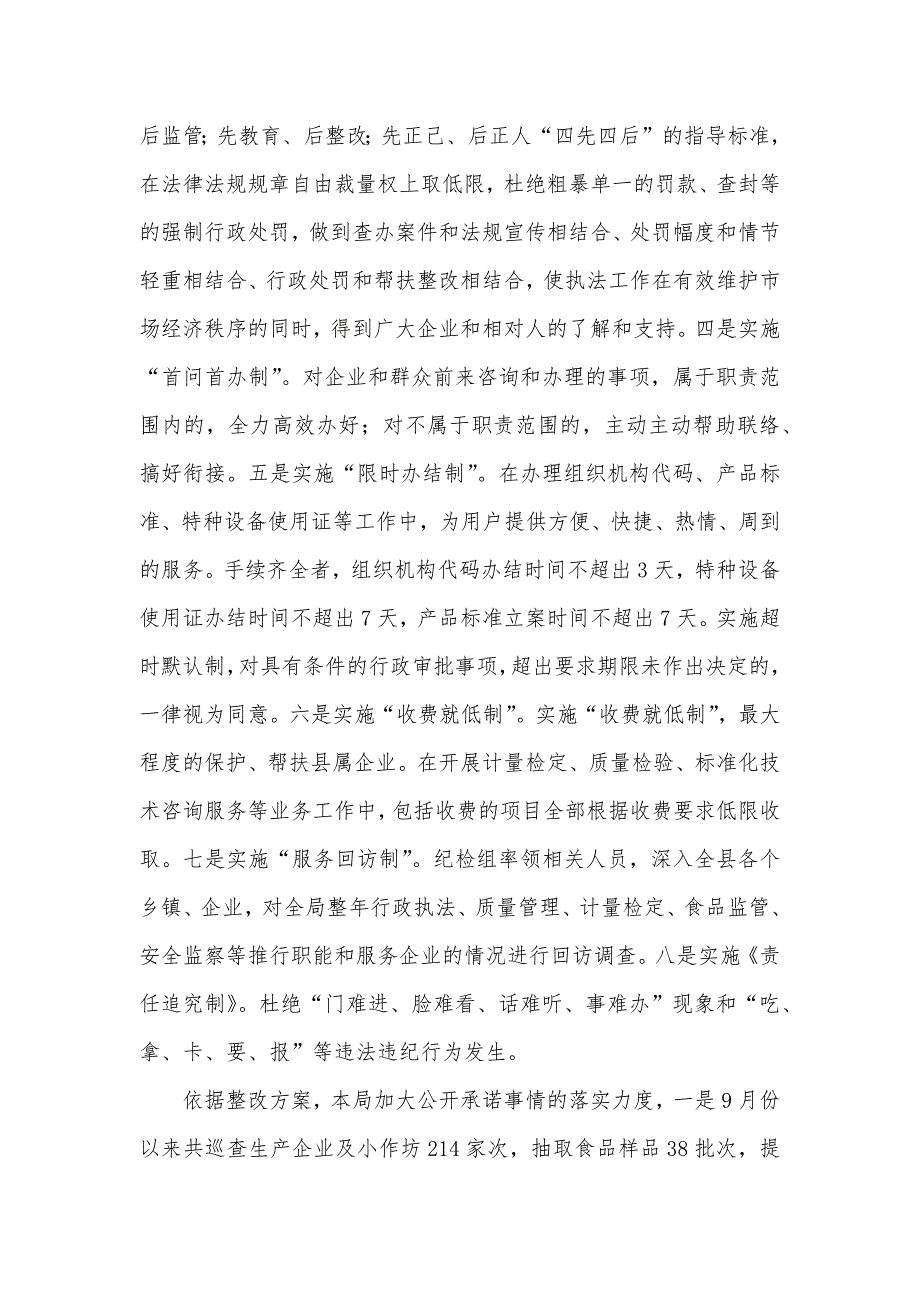 后监管；先教育、后整改；先正己、后正人“四先四后”的指导标准，
在法律法规规章自由裁量权上取低限，杜绝粗暴单一的罚款、查封等
的强制行政处罚，做到查办案件和法规宣传相结合、处罚幅度和情节
轻重相结合、行政处罚和帮扶整改相结合，使执法工作在有效维护市
场经济秩序的同时，得到广大企业和相对人的了解和支持。四是实施
“首问首办制”。对企业和群众前来咨询和办理的事项，属于职责范
围内的，全力高效办好；对不属于职责范围的，主动主动帮助联络、
搞好衔接。五是实施“限时办结制”。在办理组织机构代码、产品标
准、特种设备使用证等工作中，为用户提供方便、快捷、热情、周到
的服务。手续齐全者，组织机构代码办结时间不超出 3 天，特种设备
使用证办结时间不超出 7 天，产品标准立案时间不超出 7 天。实施超
时默认制，对具有条件的行政审批事项，超出要求期限未作出决定的，
一律视为同意。六是实施“收费就低制”。实施“收费就低制”，最大
程度的保护、帮扶县属企业。在开展计量检定、质量检验、标准化技
术咨询服务等业务工作中，包括收费的项目全部根据收费要求低限收
取。七是实施“服务回访制”。纪检组率领相关人员，深入全县各个
乡镇、企业，对全局整年行政执法、质量管理、计量检定、食品监管、
安全监察等推行职能和服务企业的情况进行回访调查。八是实施《责
任追究制》。杜绝“门难进、脸难看、话难听、事难办”现象和“吃、
拿、卡、要、报”等违法违纪行为发生。
依据整改方案，本局加大公开承诺事情的落实力度，一是 9 月份
以来共巡查生产企业及小作坊 214 家次，抽取食品样品 38 批次，提